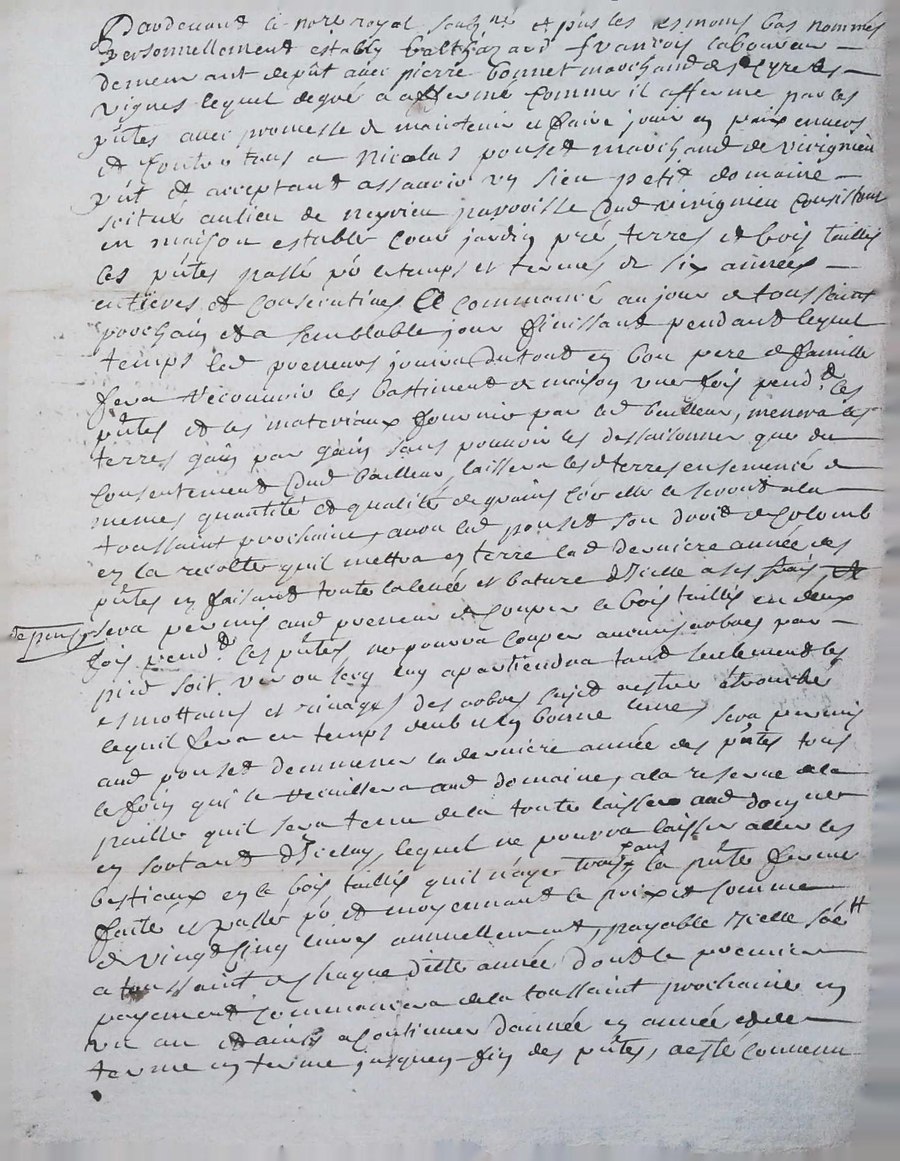 Pardevant le nore royal soubné et pnts les tesmoins bas nommés
personnellement estably balthazard francois laboureur
demeurant depñt avec pierre bonnet marchand de
vignes lequel degré a affermé comme il afferme par les
pñtes avec promesse de maintenir et faire jouir en paix envers
et contre tous a Nicolas ponset marchand de virignieu
pñt et acceptant assavoir un sien petit domaine
scitué au lieu de neyrieu parroisse dud virignieu consistant
en maison estable cour jardin pré terres et bois taillis
les pñtes passé pō le temps et termes de six années
entieres et consecutives Ce commancé au jour de toussaint
prochain et a semblable jour finissant pendant lequel
temps led preneur jouira du tout en bon pere de famille
fera recouvrir les bastiment et maison une fois pendt. les
pñtes et les materiaux fournir par led bailleur, menera les
terres gain par gain sans pouvoir les dessaisonner que du
consentement dud bailleur, laissera lesd terres ensemencé de
memes quantité et qualité de grains a la
toussaint prochaine, aura led ponset son droit de colomb
en la recolte qu'il mettra en terre lad derniere année des
pñtes en faisant toute la levée et bature d'icelle a ses frais,
sera permis aud preneur de couper le bois taillis en deux
fois pendt. les pñtes ne pourra couper aucuns arbres par
pied soit vif ou secq luy apartiendra tant seulement les
esmottains et des arbres sujet a estre étronché
lequel fera en temps deub et en bonne lune, sera permis
aud ponset demmener la derniere année des pñtes tous
le foin qui se recuillera aud domaine, a la reserve de la
paille qu'il sera tenu de la toute laisser aud domaine
en sortant d'iceluy, lequel ne pourra laisser aller les
bestiaux en le bois taillis qu'il n'aye trois ans la pñte ferme
faite et passée pō et moyennant le prix et somme
de vingt cinq livres annuellement, payable icelle
a toussaint de chaque ditte année dont le premier
payement commancera de la toussaint prochaine en
un an et ainsi a continuer d'année en année et de
terme en terme jusques fin des pñtes, a esté convenu